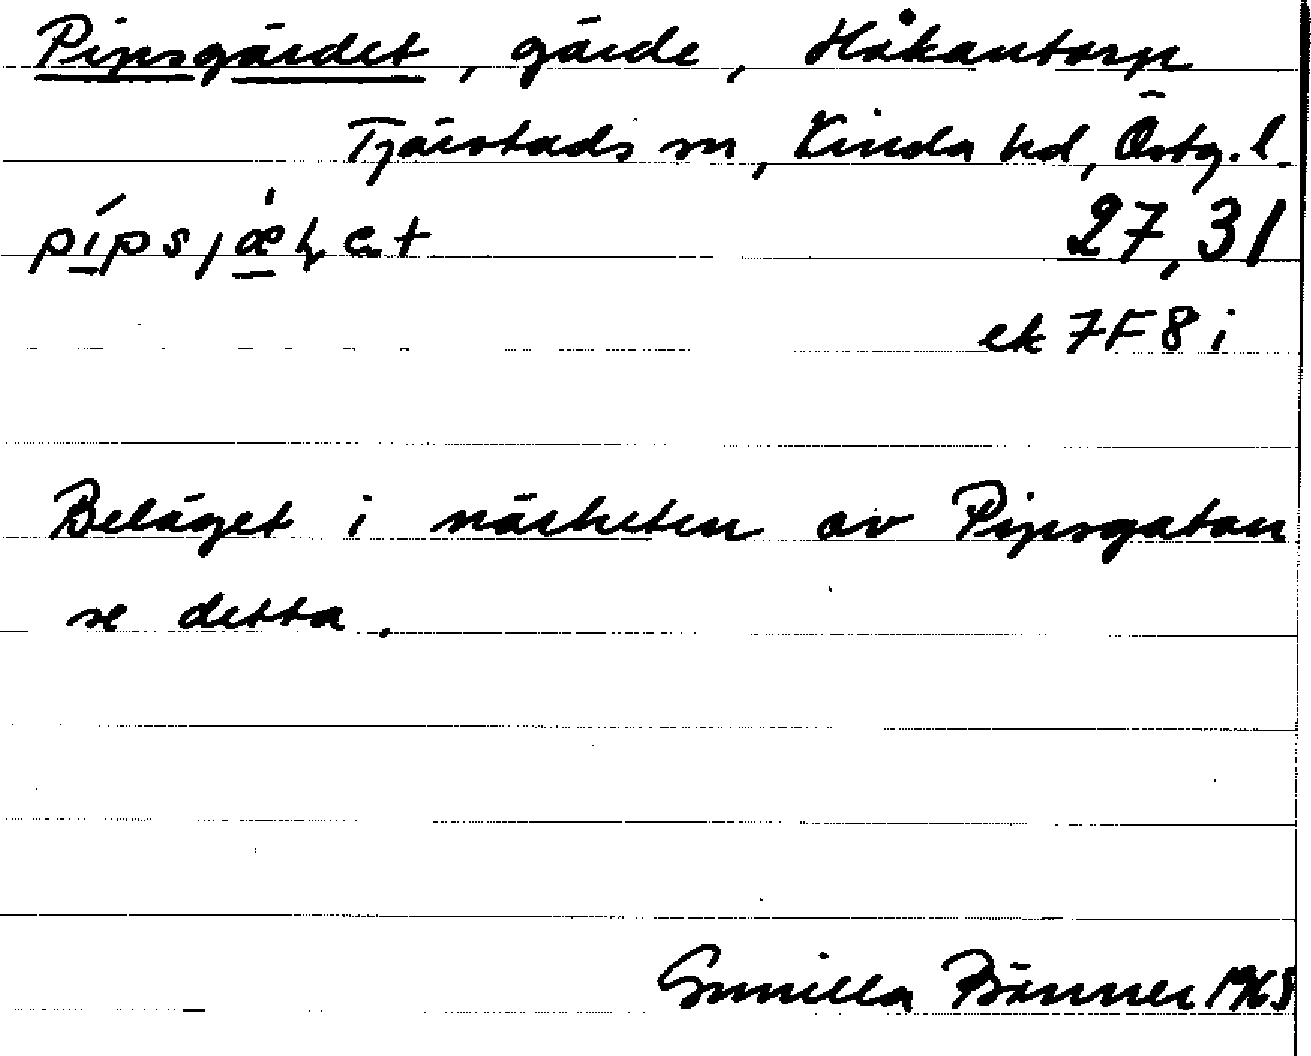 Pipsgärdet, gärde, Håkantorp
Tjärstads sn, Kinda hd, Östg. l.
27,31
ek 7F8i
Beläget i närheten av Pipsgatan
se detta.
Gunilla